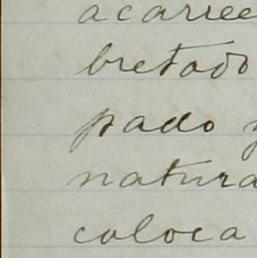 acarree
bretado
pado y
natura
coloca